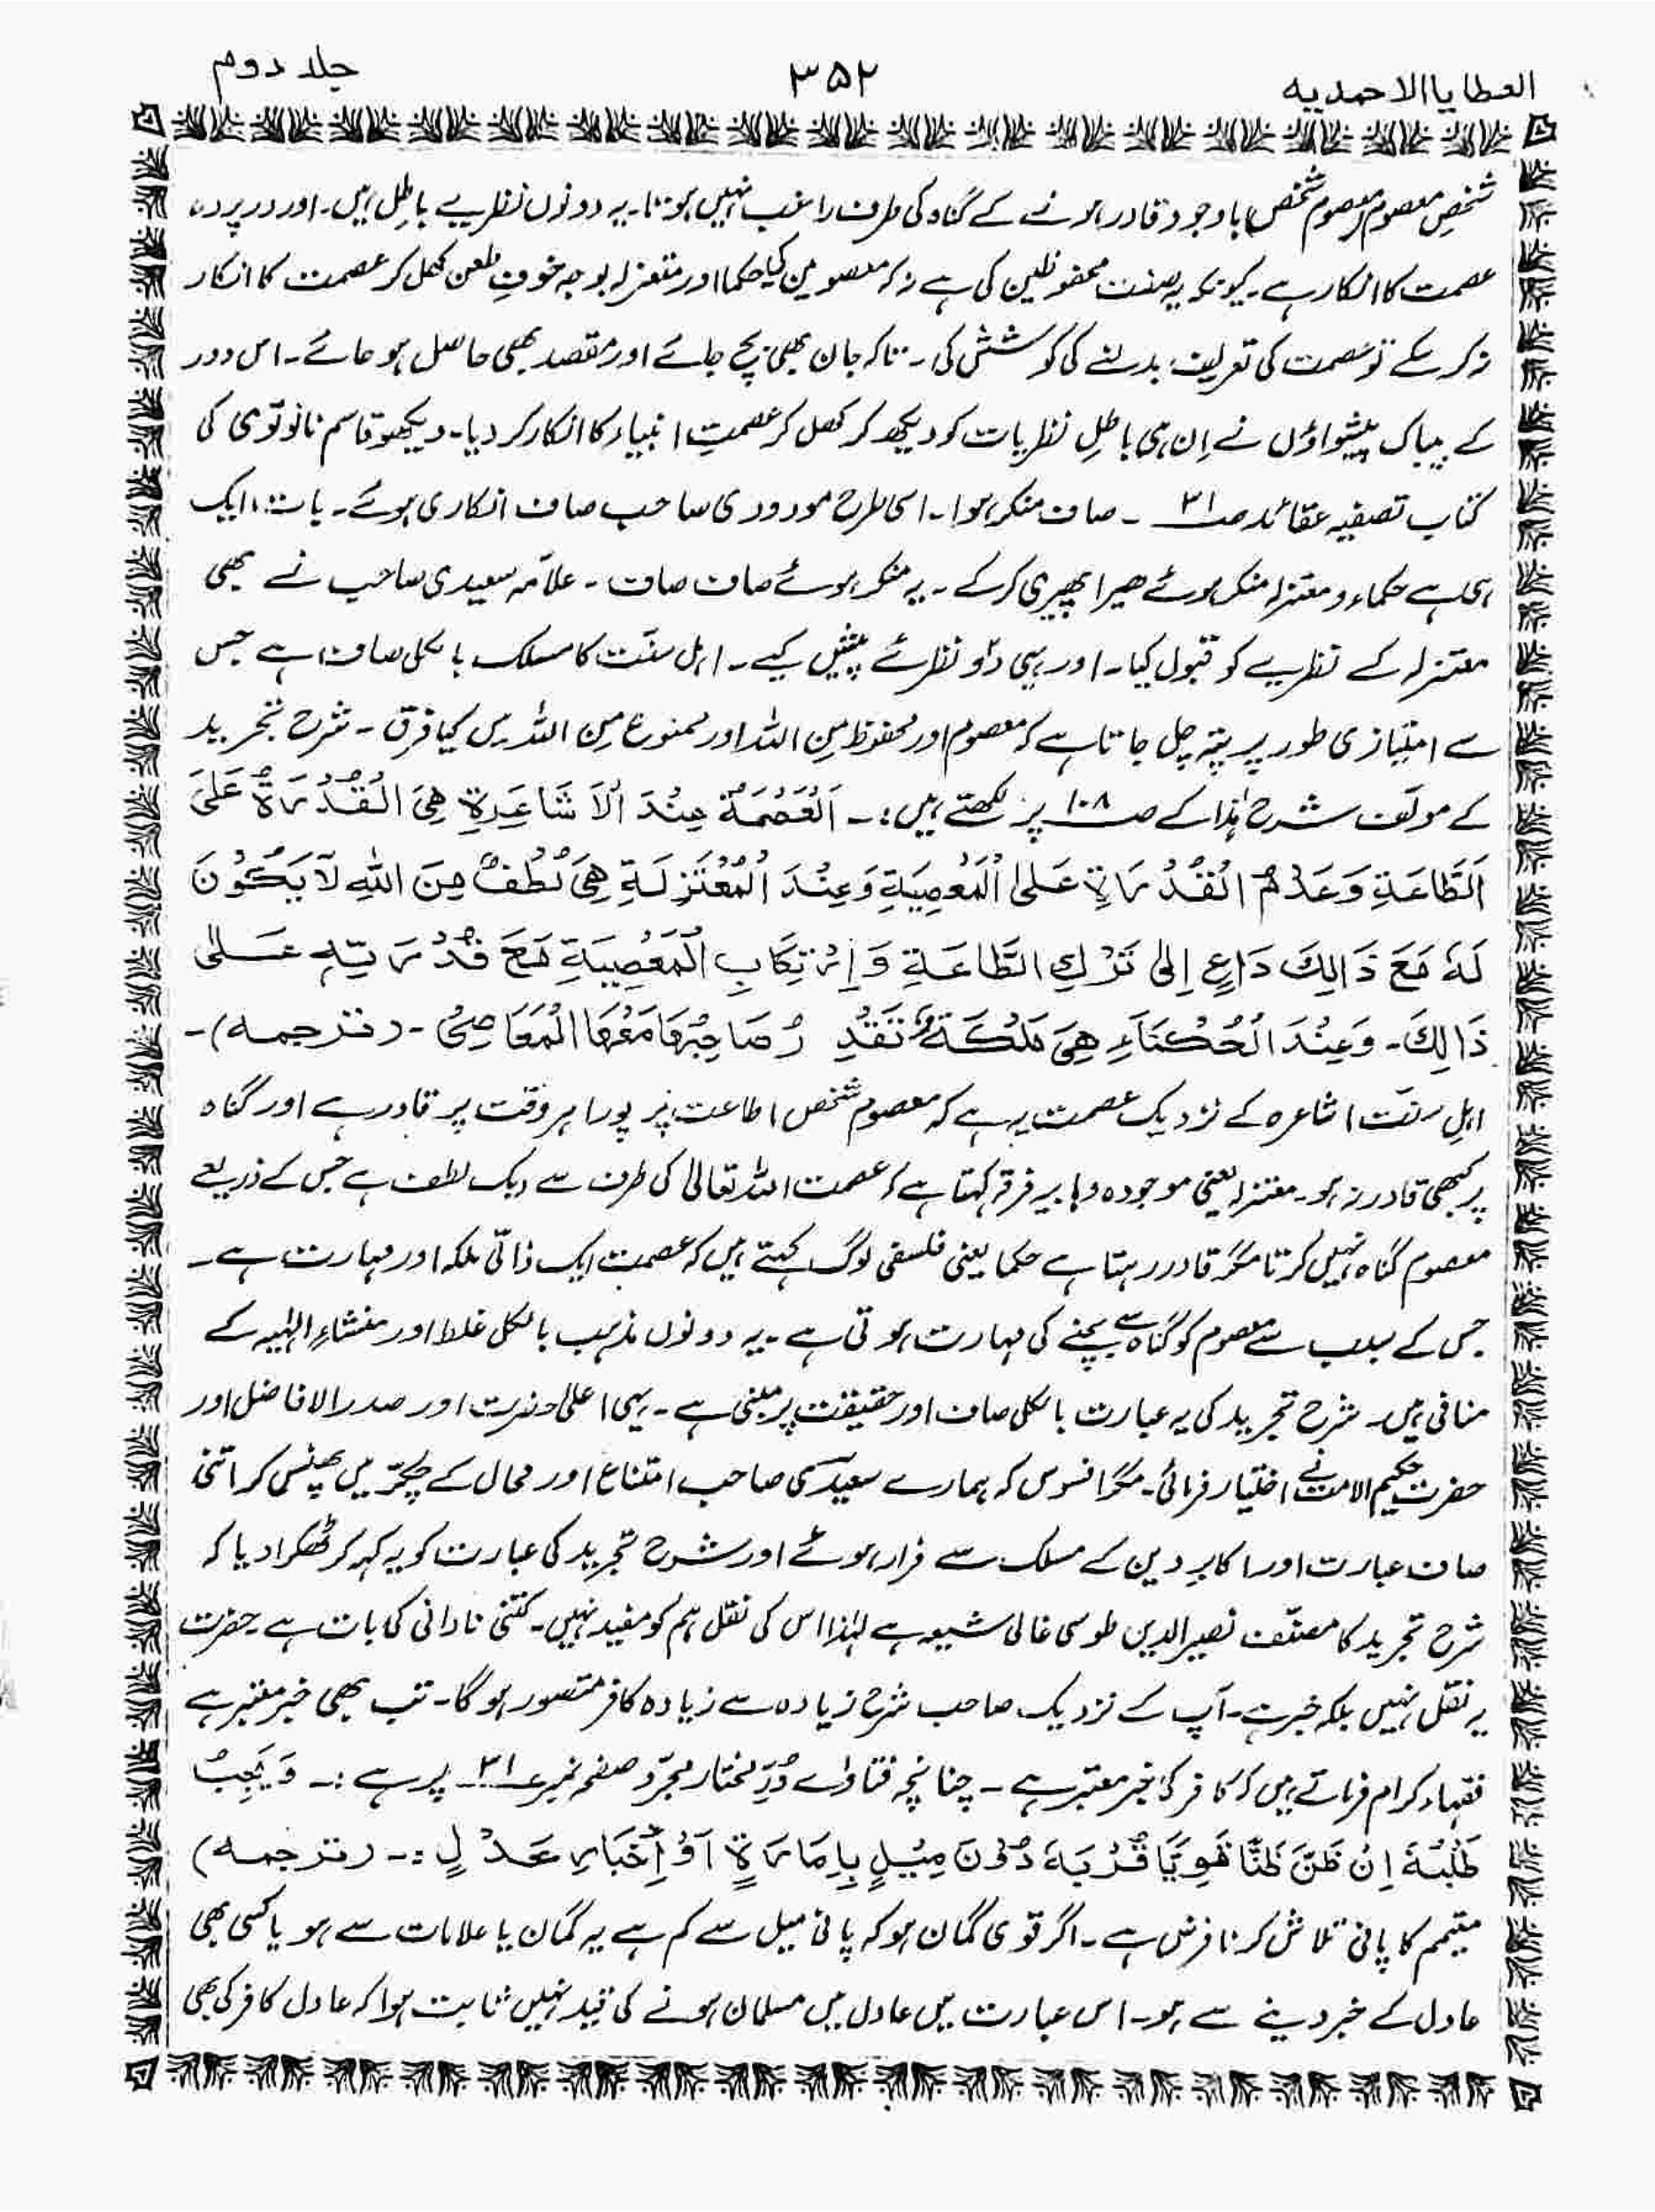 العطایا الاحمدیہ ۳۵۲ جلد دوم
شخصِ معصوم معصوم شخص باوجود قادر ہونے کے گناہ کی طرف راغب نہیں ہوتا۔ یہ دونوں نظریے باطل ہیں۔ اور در پردہ
عصمت کا انکار ہے۔ کیونکہ یہ صفت محفوظین کی ہے نہ کہ معصومین کی حکما اور متعزلہ بوجہ خوفِ طعن کھل کر عصمت کا انکار
نہ کر سکے تو عصمت کی تعریف بدلنے کی کوشش کی۔ تاکہ جان بھی بچ جائے اور مقصد بھی حاصل ہو جائے۔ اس دور
کے بیباک پیشواؤں نے اِن ہی باطل نظریات کو دیکھ کر کھل کر عصمتِ انبیاء کا انکار کر دیا۔ دیکھو قاسم نانوتوی کی
کتاب تصفیہ عقائد صـ ۳۱ ۔ صاف منکر ہوا۔ اسی طرح مودودی صاحب صاف انکاری ہوئے۔ بات ایک
ہی ہے حکماء و معتزلہ منکر ہوئے ھیرا پھیری کر کے۔ یہ منکر ہوئے صاف صاف۔ علامہ سعیدی صاحب نے بھی
معتزلہ کے نظریے کو قبول کیا۔ اور یہی دو نظرئے پیش کیے۔ اہل سنت کا مسلک بالکل صاف ہے جس
سے امتیازی طور پر پتہ چل جاتا ہے کہ معصوم اور محفوظ مِن اللہ اور ممنوع مِن اللہ میں کیا فرق۔ شرح تجرید
کے مولف شرح ہٰذا کے صـ ۱۰۸ پر لکھتے ہیں :۔ اَلْعَصْمَةُ عِنْدَ الْاَشَاعِرَةِ هِيَ الْقُدْرَةُ عَلَى
الطَّاعَةِ وَعَدْمُ الْقُدْرَةِ عَلَى الْمَعْصِيَةِ وَعِنْدَ الْمُعْتَزِلَةِ هِيَ لُطْفٌ مِنَ اللهِ لَا يَكُوْنَ
لَهٗ مَعَ ذَالِكَ دَاعٍ اِلٰى تَرْكِ الطَّاعَةِ وَاِرْتِكَابِ الْمَعْصِيَةِ مَعَ قُدْرَتِهٖ عَلٰى
ذَالِكَ۔ وَعِنْدَ الْحُكْمَاءِ هِيَ مَلْكَةٌ تَقْدِ رُ صَاحِبُهَا مَعَهَا الْمَعَاصِيْ ۔ (ترجمہ)۔
اہلِ سنّت اشاعرہ کے نزدیک عصمت یہ ہے کہ معصوم شخص اطاعت پر پورا ہر وقت پر قادر ہے اور گناہ
پر کبھی قادر نہ ہو۔ معتزلہ یعنی موجودہ وہابیہ فرقہ کہتا ہے کہ عصمت اللہ تعالیٰ کی طرف سے ایک لطف ہے جس کے ذریعے
معصوم گناہ نہیں کرتا مگر قادر رہتا ہے حکما یعنی فلسفی لوگ کہتے ہیں کہ عصمت ایک ذاتی ملکہ اور مہارت ہے۔
جس کے سبب سے معصوم کو گناہ سے بچنے کی مہارت ہوتی ہے۔ یہ دونوں مذہب بالکل غلط اور منشاءِ الہٰیہ کے
منافی ہیں۔ شرح تجرید کی یہ عبارت بالکل صاف اور حقیقت پر مبنی ہے۔ یہی اعلیٰ حضرت اور صدر الافاضل اور
حضرت حکیم الامت نے اختیار فرمائی۔ مگر افسوس کہ ہمارے سعیدی صاحب امتناع اور محال کے چکّر میں پھنس کر اتنی
صاف عبارت اور اکابرِ دین کے مسلک سے فرار ہوئے اور شرح تجرید کی عبارت کو یہ کہہ کر ٹھکرا دیا کہ
شرح تجرید کا مصنّف نصیر الدین طوسی غالی شیعہ ہے لہٰذا اس کی نقل ہم کو مفید نہیں۔ کتنی نادانی کی بات ہے۔ حضرت
یہ نقل نہیں بلکہ خبر ہے۔ آپ کے نزدیک صاحب شرح زیادہ سے زیادہ کافر متصور ہوگا۔ تب بھی خبر معتبر ہے
فقہاء کرام فرماتے ہیں کہ کافر کی خبر معتبر ہے۔ چنانچہ فتاوٰے دُرِّ مختار مجرّد صفحہ نمبر ۳۱ پر ہے :۔ وَيَجِبُ
طَلْبُهٗ اِنْ ظَنَّ ظَنًّا قَوِيًّا قُرْبَهٗ دُوْنَ مِيْلٍ بِاِمَارَةٍ اَوْ اِخْبَارِ عَدْلٍ :۔ (ترجمہ)
متیمم کا پانی تلاش کرنا فرض ہے۔ اگر قوی گمان ہو کہ پانی میل سے کم ہے یہ گمان یا علامات سے ہو یا کسی بھی
عادل کے خبر دینے سے ہو۔ اس عبارت میں عادل میں مسلمان ہونے کی قید نہیں ثابت ہوا کہ عادل کافر کی بھی